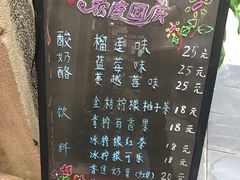 欢度国庆
酸奶酪
榴莲味 25元
蓝莓味 25元
蔓越莓味 25元
饮料
金桔柠檬柚子茶 18元
青柠百香果 18元
冰柠檬红茶 18元
冰柠檬可乐 18元